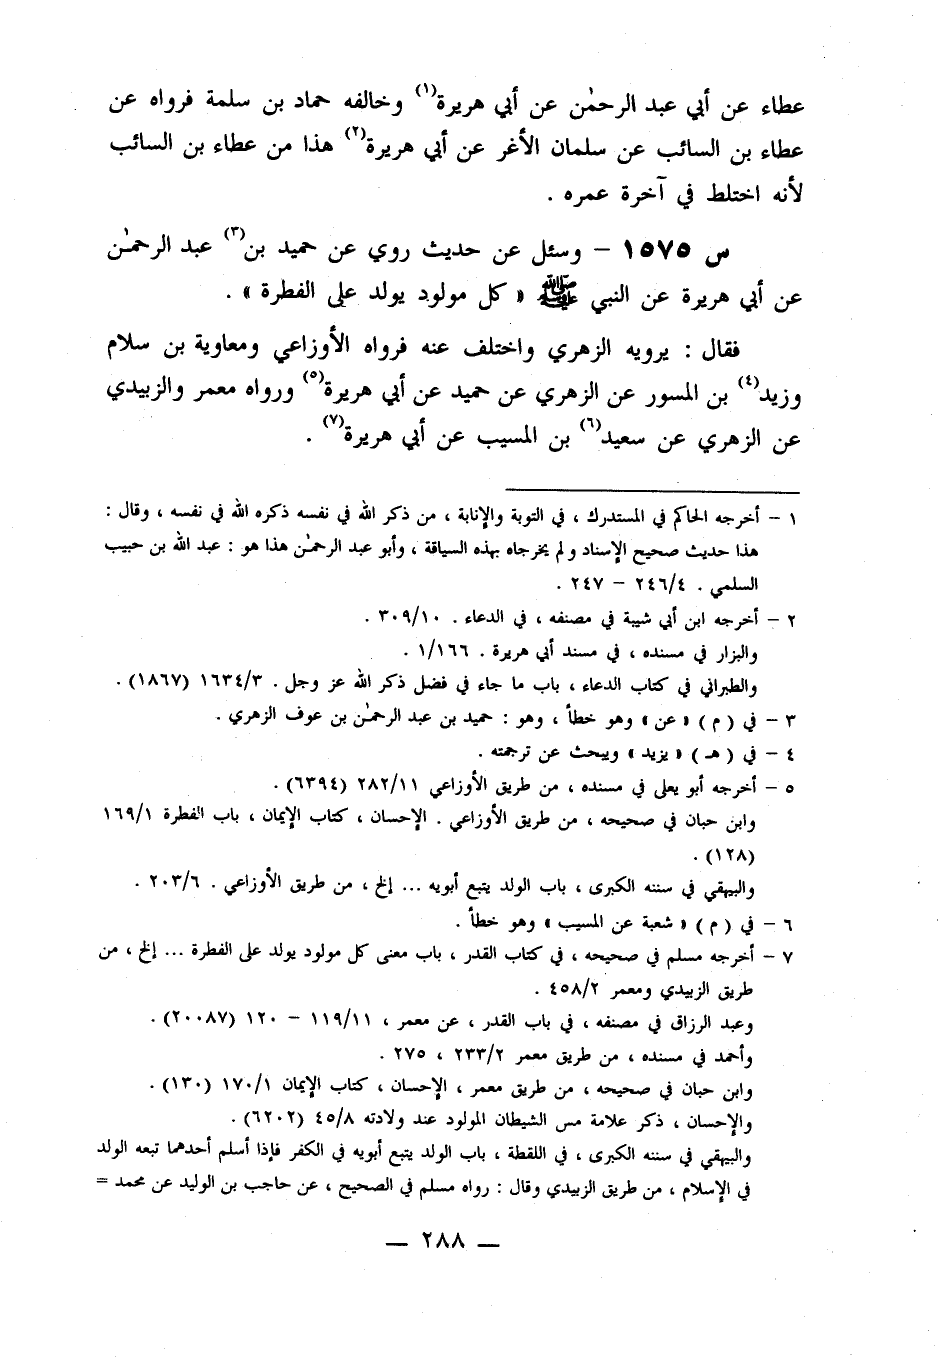 عطاء عن أبي عبد الرحمٰن عن أبي هريرة(١) وخالفه حماد بن سلمة فرواه عن
عطاء بن السائب عن سلمان الأغر عن أبي هريرة(٢) هذا من عطاء بن السائب
لأنه اختلط في آخرة عمره .
س ١٥٧٥ – وسئل عن حديث روي عن حميد بن(٣) عبد الرحمٰن
عن أبي هريرة عن النبي ﷺ « كل مولود يولد على الفطرة » .
فقال : يرويه الزهري واختلف عنه فرواه الأوزاعي ومعاوية بن سلام
وزيد(٤) بن المسور عن الزهري عن حميد عن أبي هريرة(٥) ورواه معمر والزبيدي
عن الزهري عن سعيد(٦) بن المسيب عن أبي هريرة(٧) .
١ – أخرجه الحاكم في المستدرك ، في التوبة والإنابة ، من ذكر الله في نفسه ذكره الله في نفسه ، وقال :
هذا حديث صحيح الإسناد ولم يخرجاه بهذه السياقة ، وأبو عبد الرحمٰن هذا هو : عبد الله بن حبيب
السلمي . ٢٤٦/٤ – ٢٤٧ .
٢ – أخرجه ابن أبي شيبة في مصنفه ، في الدعاء . ٣٠٩/١٠ .
والبزار في مسنده ، في مسند أبي هريرة . ١/١٦٦ .
والطبراني في كتاب الدعاء ، باب ما جاء في فضل ذكر الله عز وجل . ١٦٣٤/٣ (١٨٦٧) .
٣ – في ( م ) « عن » وهو خطأ ، وهو : حميد بن عبد الرحمٰن بن عوف الزهري .
٤ – في ( هـ ) « يزيد » ويبحث عن ترجمته .
٥ – أخرجه أبو يعلى في مسنده ، من طريق الأوزاعي ٢٨٢/١١ (٦٣٩٤) .
وابن حبان في صحيحه ، من طريق الأوزاعي . الإحسان ، كتاب الإيمان ، باب الفطرة ١٦٩/١
(١٢٨) .
والبيهقي في سننه الكبرى ، باب الولد يتبع أبويه ... إلخ ، من طريق الأوزاعي . ٢٠٣/٦ .
٦ – في ( م ) « شعبة عن المسيب » وهو خطأ .
٧ – أخرجه مسلم في صحيحه ، في كتاب القدر ، باب معنى كل مولود يولد على الفطرة ... إلخ ، من
طريق الزبيدي ومعمر ٤٥٨/٢ .
وعبد الرزاق في مصنفه ، في باب القدر ، عن معمر ، ١١٩/١١ – ١٢٠ (٢٠٠٨٧) .
وأحمد في مسنده ، من طريق معمر ٢٣٣/٢ ، ٢٧٥ .
وابن حبان في صحيحه ، من طريق معمر ، الإحسان ، كتاب الإيمان ١٧٠/١ (١٣٠) .
والإحسان ، ذكر علامة مس الشيطان المولود عند ولادته ٤٥/٨ (٦٢٠٢) .
والبيهقي في سننه الكبرى ، في اللقطة ، باب الولد يتبع أبويه في الكفر فإذا أسلم أحدهما تبعه الولد
في الإسلام ، من طريق الزبيدي وقال : رواه مسلم في الصحيح ، عن حاجب بن الوليد عن محمد =
— ٢٨٨ —